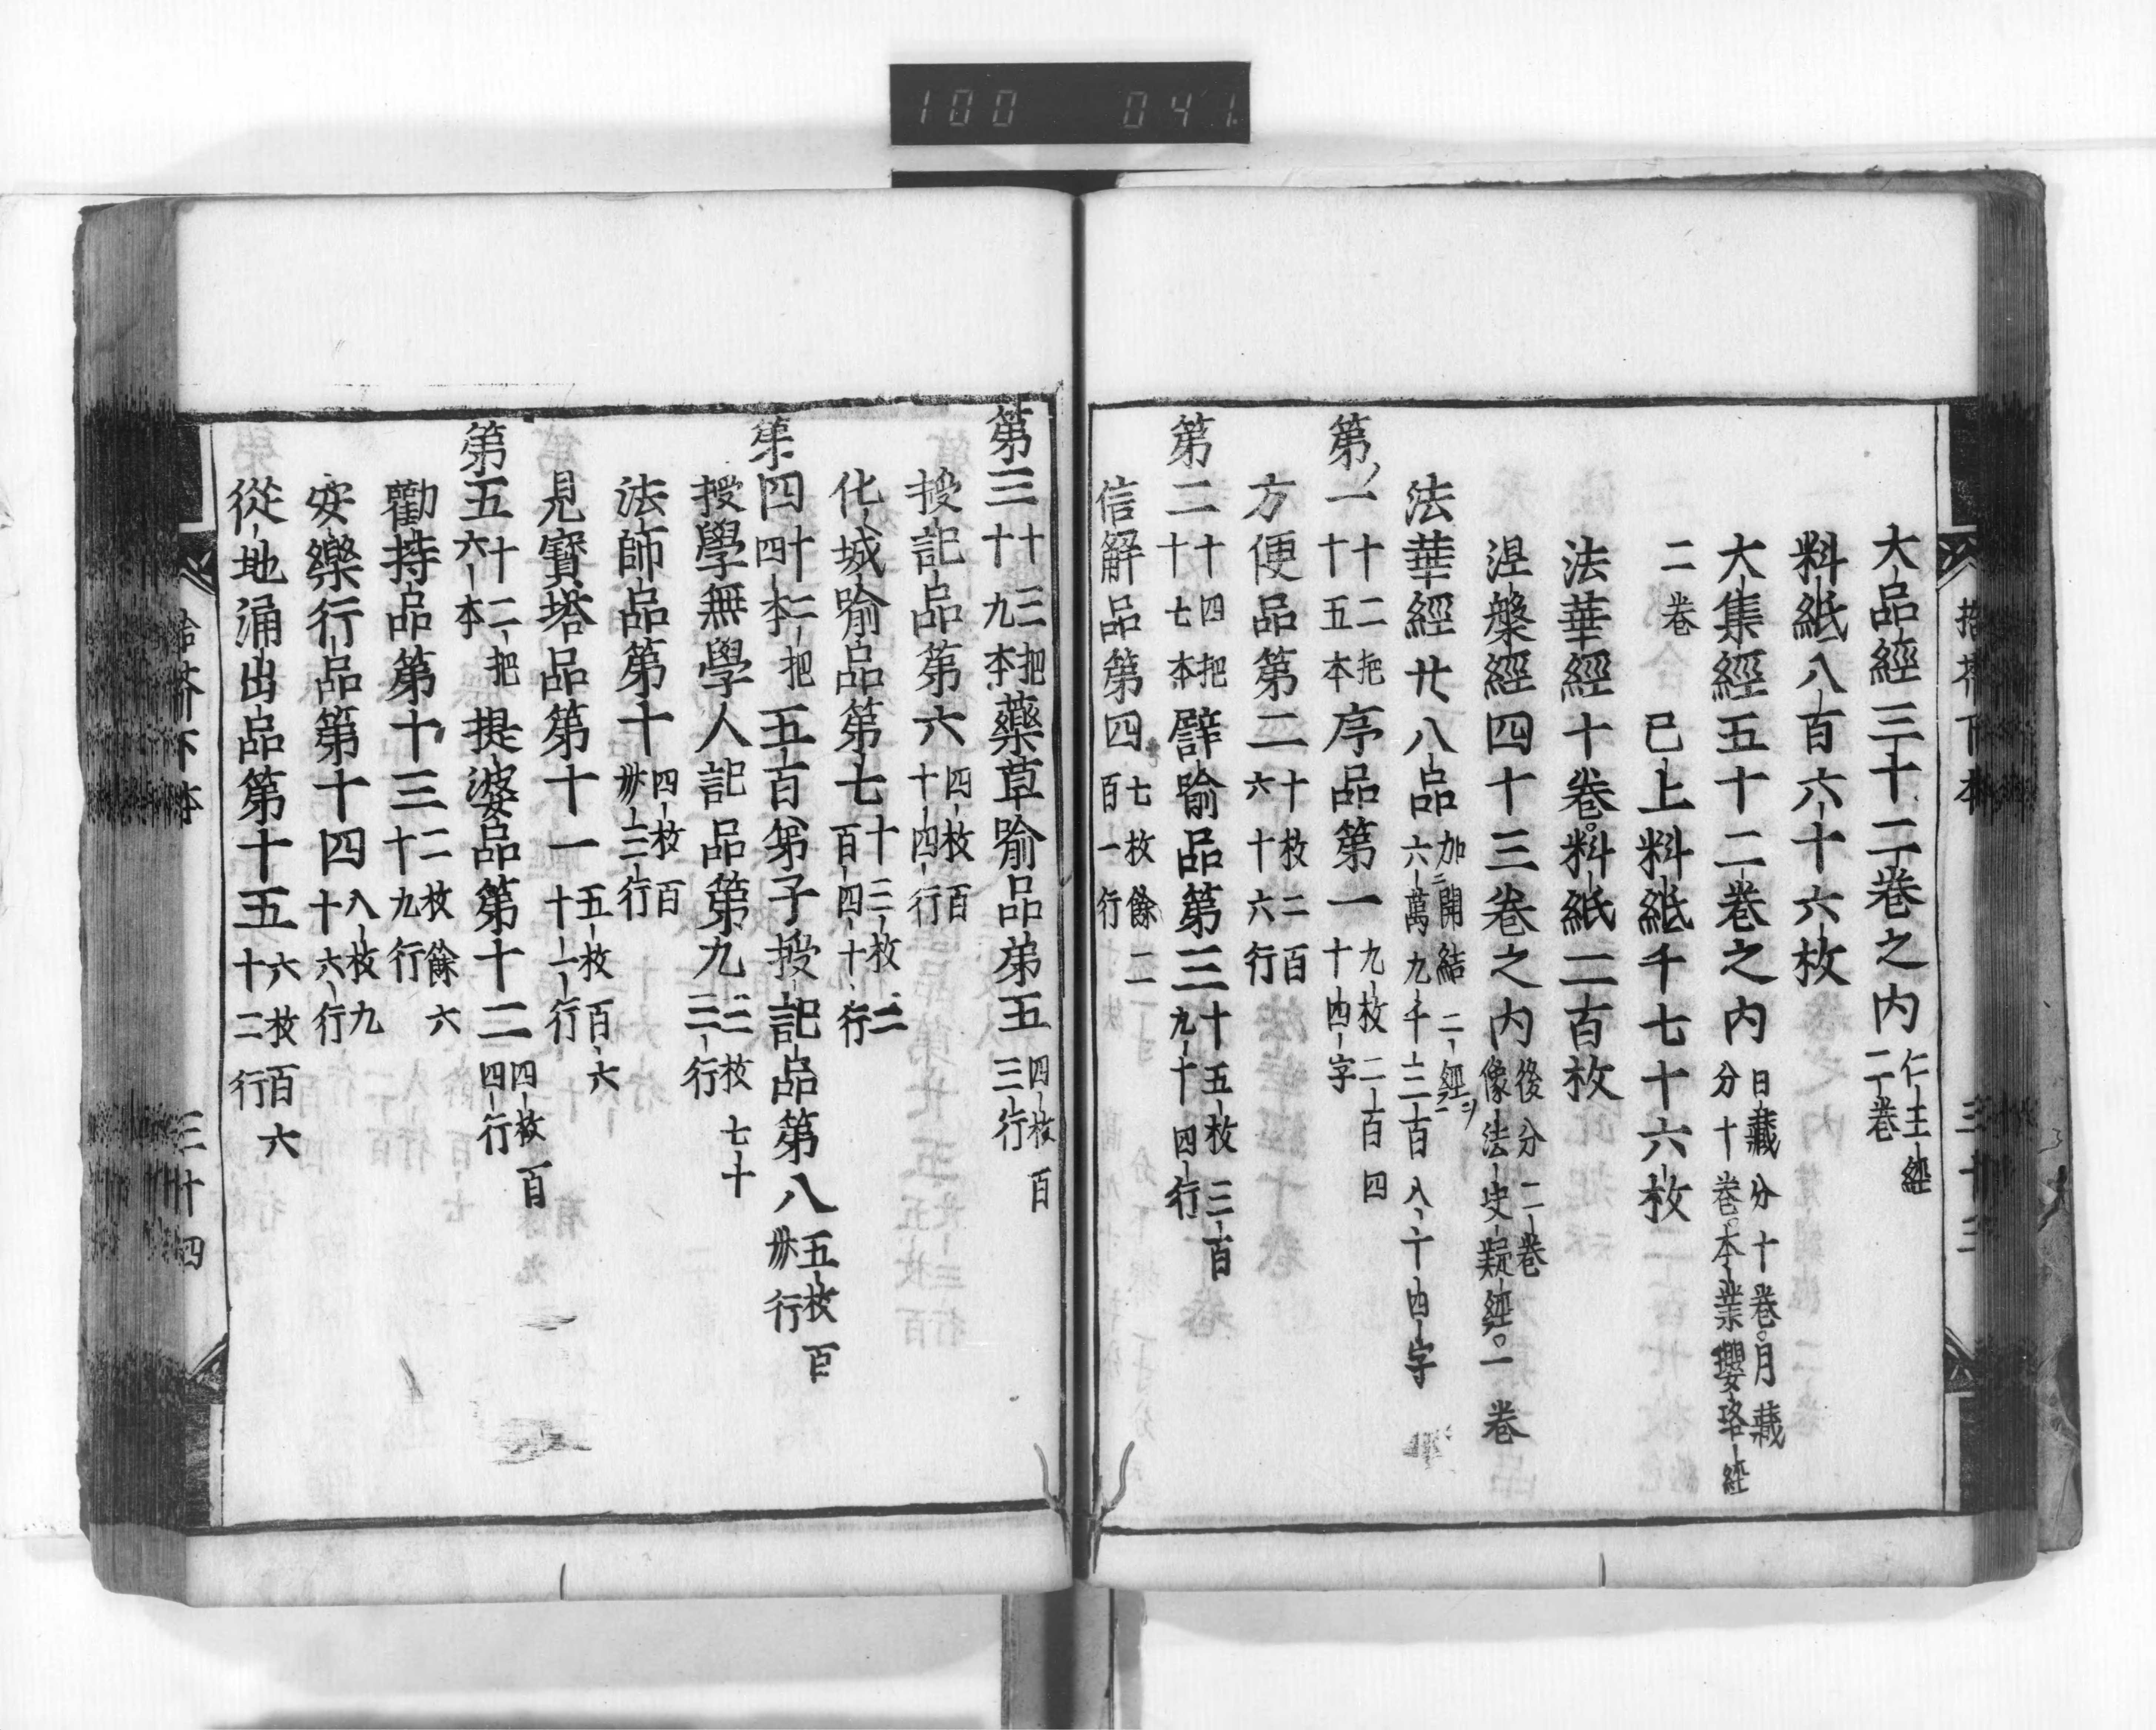 100 041
大品經三十二卷之内仁王經二卷
料紙八百六十六枚
大集經五十二卷之内日藏分十卷。月藏分十卷。本業瓔珞經
二卷 已上料紙千七十六枚
法華經十卷。料紙二百枚
涅槃經四十三卷之内後分二卷像法史疑經。一卷
法華經廿八品加二開結二經ヲ一六萬九千三百八十四字
第一十二把十五本序品第一九枚二百四十四字
方便品第二十枚二百六十六行
第二十四把十七本譬喻品第三十五枚三百九十四行
信解品第四七枚餘二百一行
三十三
第三十三把十九本藥草喻品第五四枚百三行
授記品第六四枚百十四行
化城喻品第七十三枚二百四十行
第四十二把四本五百弟子授記品第八五枚百卅行
授學無學人記品第九三枚七十三行
法師品第十四枚百卅三行
見寶塔品第十一五枚百六十一行
第五十二把六本提婆品第十二四枚百四行
勸持品第十三二枚餘六十九行
安樂行品第十四八枚九十六行
從地涌出品第十五六枚百六十二行
三十四